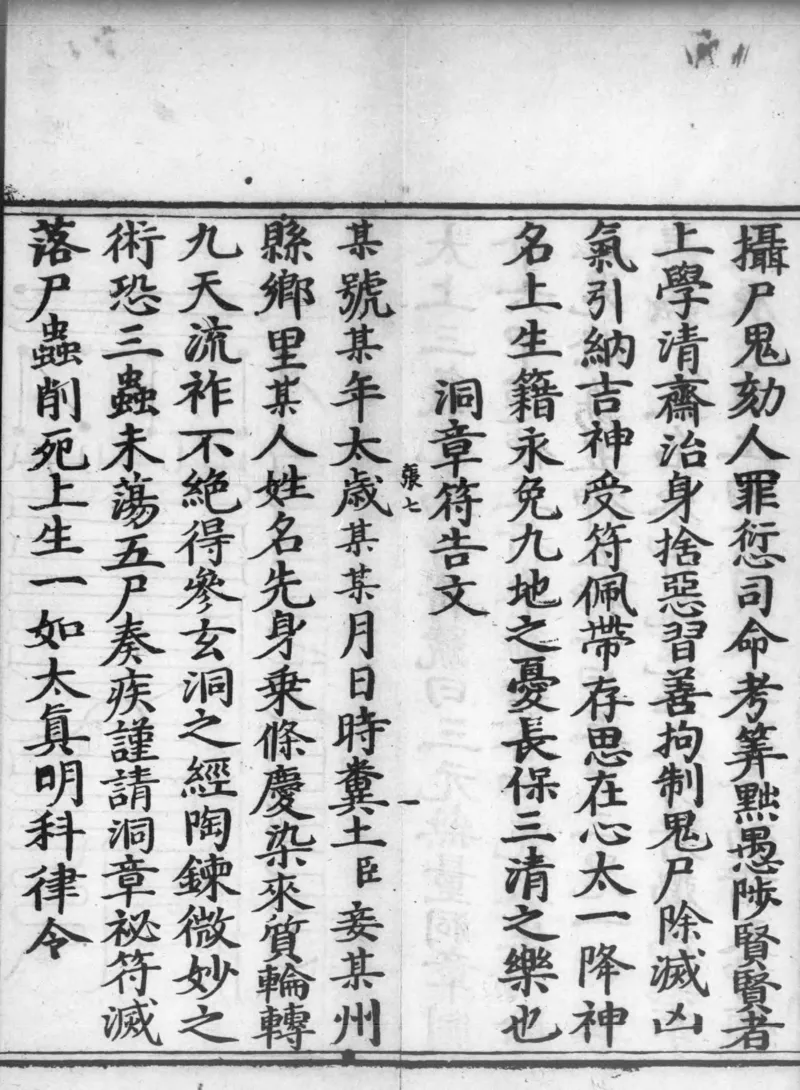 攝尸鬼劾人罪愆司命考筭黜愚陟賢賢者
上學清齋治身捨惡習善拘制鬼尸除滅凶
氣引納吉神受符佩帶存思在心太一降神
名上生籍永免九地之憂長保三清之樂也
洞章符告文
張七 一
某號某年太歲某某月日時糞土臣妾某州
縣鄉里某人姓名先身乗條慶染來質輪轉
九天流祚不絶得參玄洞之經陶鍊微妙之
術恐三蟲未蕩五尸奏疾謹請洞章祕符滅
落尸蟲削死上生一如太真明科律令